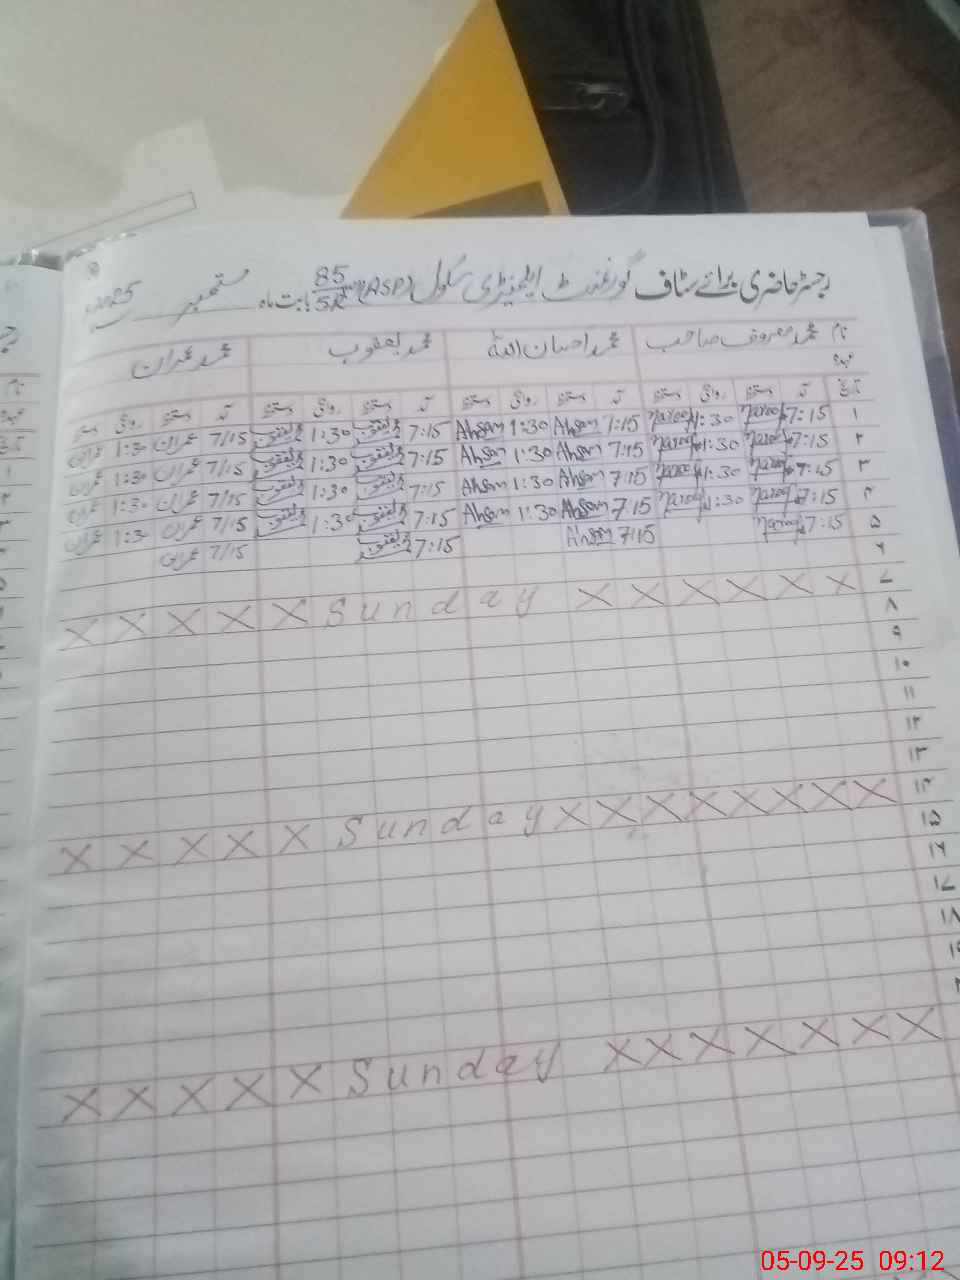 رجسٹر حاضری برائے سٹاف گورنمنٹ ایلیمنٹری سکول (ASP) 85/5R بابت ماہ ستمبر 2025
نام محمد معروف صاحب محمد احسان اللہ محمد یعقوب محمد عمران
عہدہ
تاریخ آمد دستخط روانگی دستخط آمد دستخط روانگی دستخط آمد دستخط روانگی دستخط آمد دستخط روانگی دستخط
۱ 7:15 Maroof 1:30 Maroof 7:15 Ahsan 1:30 Ahsan 7:15 یعقوب 1:30 یعقوب 7/15 عمران 1:30 عمران
۲ 7:15 Maroof 1:30 Maroof 7:15 Ahsan 1:30 Ahsan 7:15 یعقوب 1:30 یعقوب 7/15 عمران 1:30 عمران
۳ 7:15 Maroof 1:30 Maroof 7:15 Ahsan 1:30 Ahsan 7:15 یعقوب 1:30 یعقوب 7/15 عمران 1:30 عمران
۴ 7:15 Maroof 1:30 Maroof 7:15 Ahsan 1:30 Ahsan 7:15 یعقوب 1:30 یعقوب 7/15 عمران 1:30 عمران
۵ 7:15 Maroof 7:15 Ahsan 7:15 یعقوب 7/15 عمران
۶
۷ X X X X X X Sunday X X X X X
۸
۹
۱۰
۱۱
۱۲
۱۳
۱۴ X X X X X X X Sunday X X X X X
۱۵
۱۶
۱۷
۱۸
X X X X X X X Sunday X X X X X
05-09-25 09:12